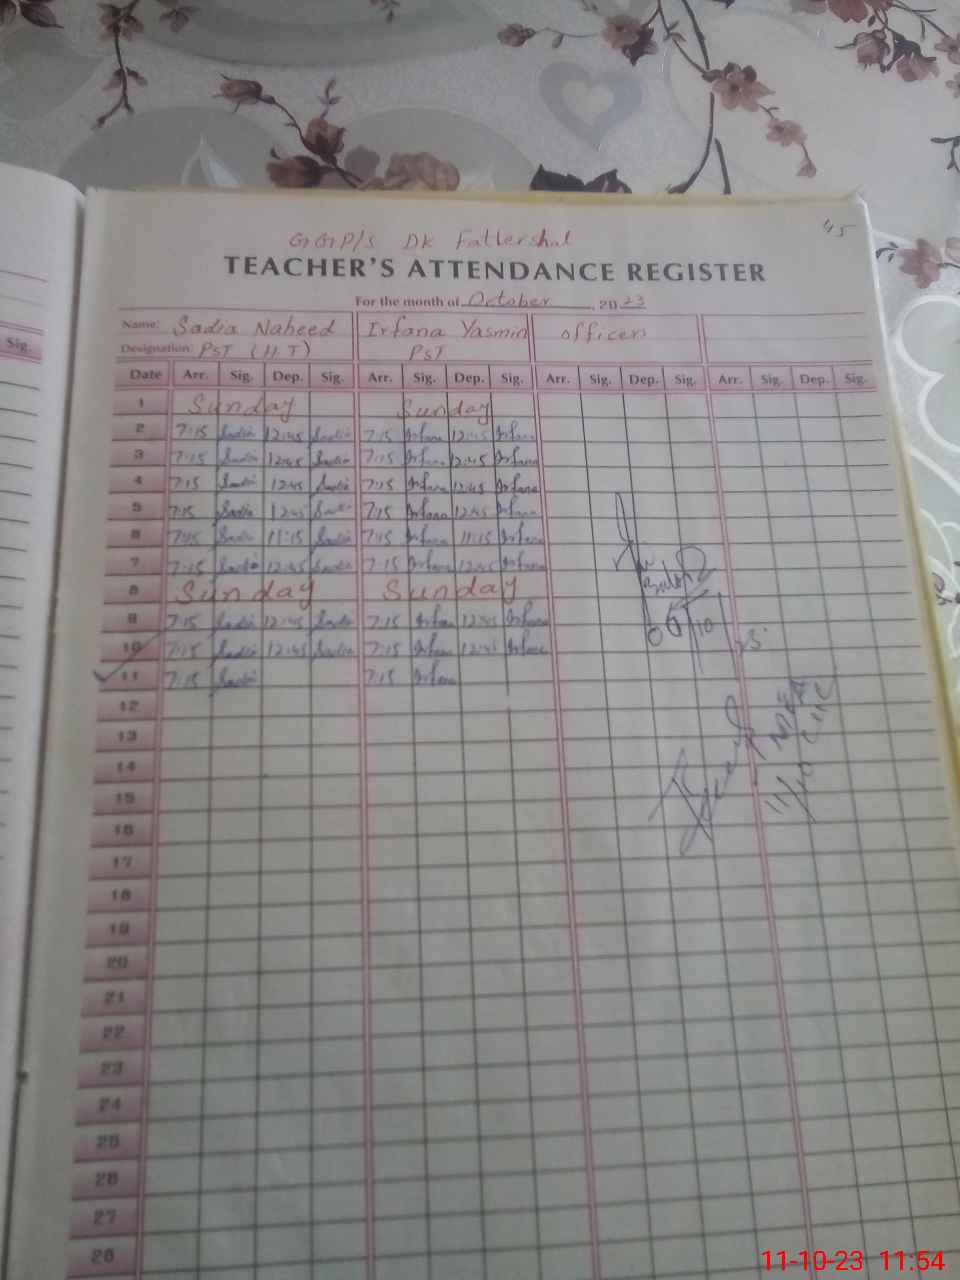 45
GGP/S DK Fattershal
TEACHER'S ATTENDANCE REGISTER
For the month of October, 2023
Name: Sadia Naheed Irfana Yasmin officer
Designation: PST (H.T) PST
Sig.
Date Arr. Sig. Dep. Sig. Arr. Sig. Dep. Sig. Arr. Sig. Dep. Sig. Arr. Sig. Dep. Sig.
1 Sunday Sunday
2 7:15 Sadia 12:45 Sadia 7:15 Irfana 12:45 Irfana
3 7:15 Sadia 12:45 Sadia 7:15 Irfana 12:45 Irfana
4 7:15 Sadia 12:45 Sadia 7:15 Irfana 12:45 Irfana
5 7:15 Sadia 12:45 Sadia 7:15 Irfana 12:45 Irfana
6 Sadia 11:15 Sadia Irfana 11:15 Irfana
7 7:15 Sadia 12:45 Sadia 7:15 Irfana 12:45 Irfana
8 Sunday Sunday
9 7:15 Sadia 12:45 Sadia 7:15 Irfana 12:45 Irfana
10 7:15 Sadia 12:45 Sadia 7:15 Irfana 12:45 Irfana
11 7:15 Sadia 7:15 Irfana
12
13
14
15
16
17
18
19
20
21
22
23
24
25
26
27
28
11-10-23 11:54